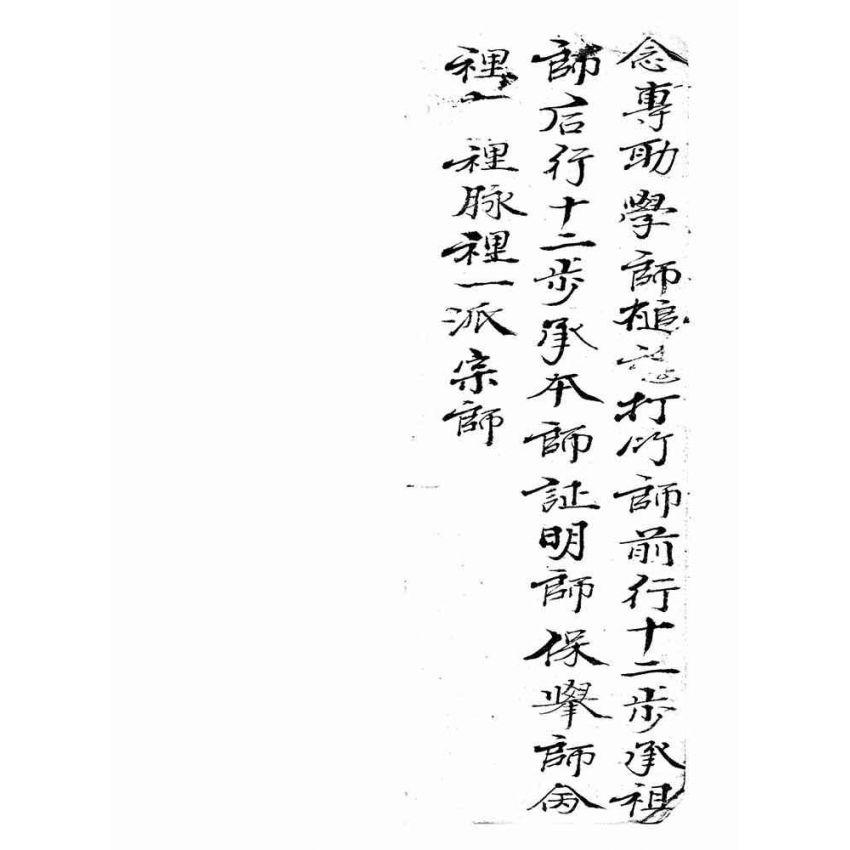 念專助學師槌鼓打竹師前行十二步承祖
師后行十二步承本師証明師保舉師
裡一 裡脉裡一派宗師